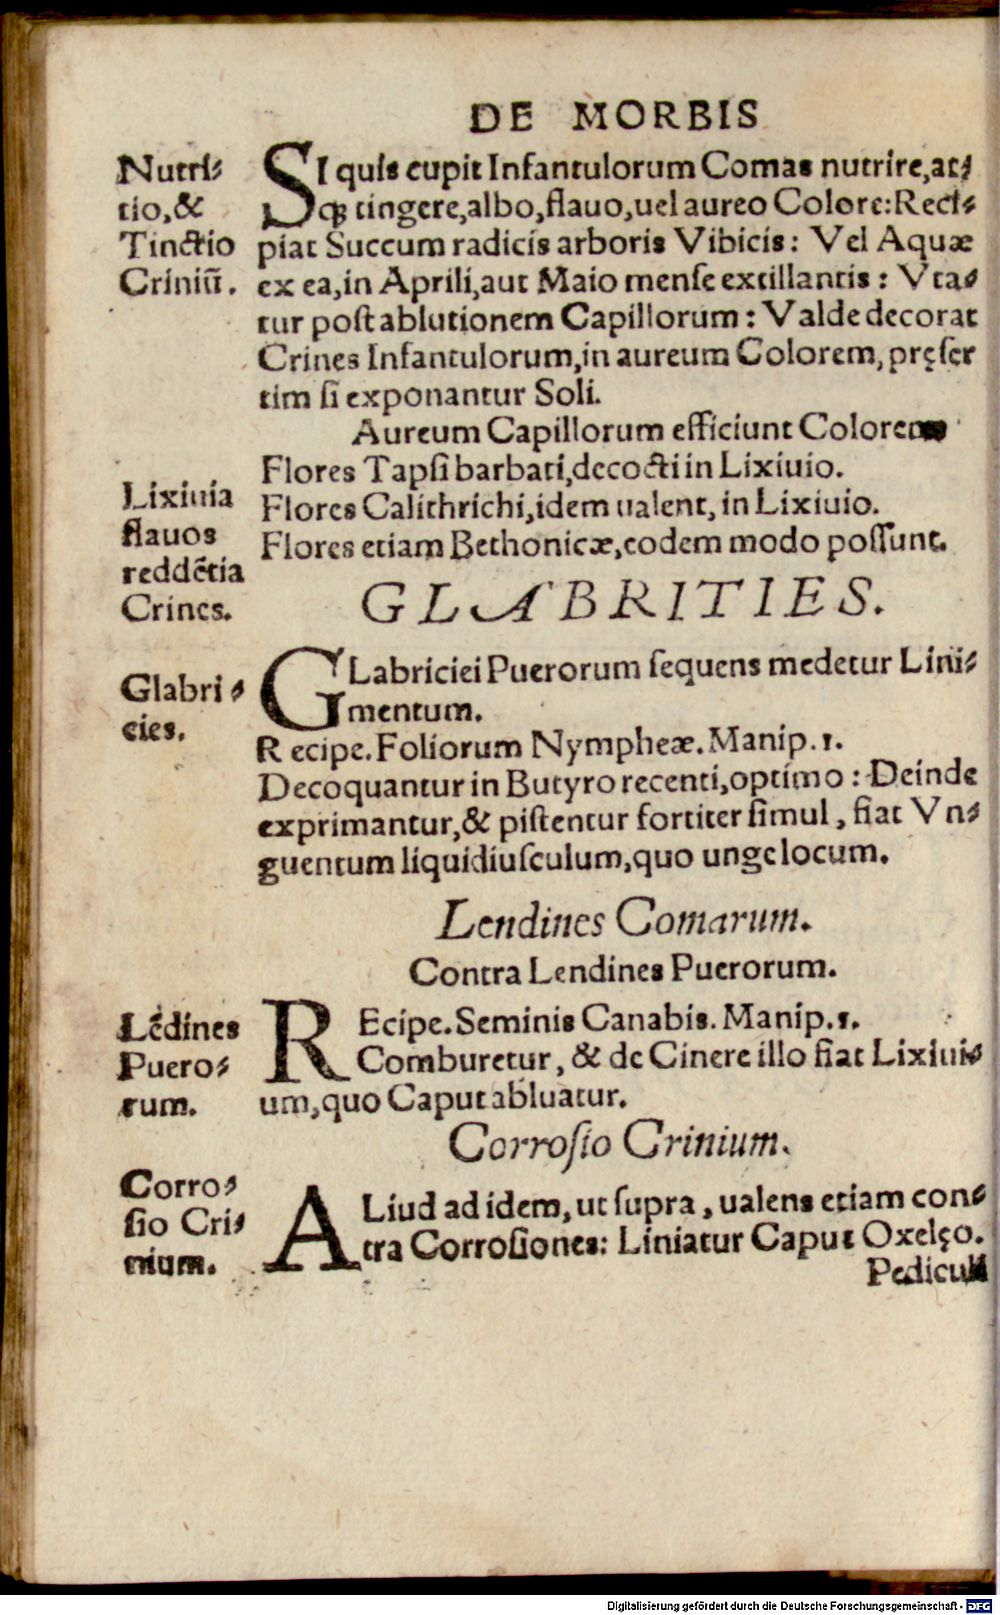 DE MORBIS
Nutri⸗
tio,&
Tinctio
Criniũ.
SI quis cupit Infantulorum Comas nutrire,at⸗
qꝫ tingere,albo,flauo,uel aureo Colore:Reci⸗
piat Succum radicis arboris Vibicis: Vel Aquæ
ex ea,in Aprili,aut Maio mense extillantis: Vta⸗
tur post ablutionem Capillorum: Valde decorat
Crines Infantulorum,in aureum Colorem, pręser
tim si exponantur Soli.
Aureum Capillorum efficiunt Colorem
Flores Tapsi barbati,decocti in Lixiuio.
Flores Calithrichi,idem ualent, in Lixiuio.
Flores etiam Bethonicæ,eodem modo possunt.
Lixiuia
flauos
reddẽtia
Crines.
GLABRITIES.
Glabri⸗
cies.
GLabriciei Puerorum sequens medetur Lini⸗
mentum.
Recipe. Foliorum Nympheæ. Manip. 1.
Decoquantur in Butyro recenti,optimo: Deinde
exprimantur,& pistentur fortiter simul, fiat Vn⸗
guentum liquidiusculum,quo unge locum.
Lendines Comarum.
Contra Lendines Puerorum.
Lẽdines
Puero⸗
rum.
REcipe. Seminis Canabis. Manip. 1.
Comburetur, & de Cinere illo fiat Lixiui⸗
um,quo Caput abluatur.
Corrosio Crinium.
Corro⸗
sio Cri⸗
nium.
ALiud ad idem, ut supra, ualens etiam con⸗
tra Corrosiones: Liniatur Caput Oxelęo.
Pediculi
Digitalisierung gefördert durch die Deutsche Forschungsgemeinschaft - DFG